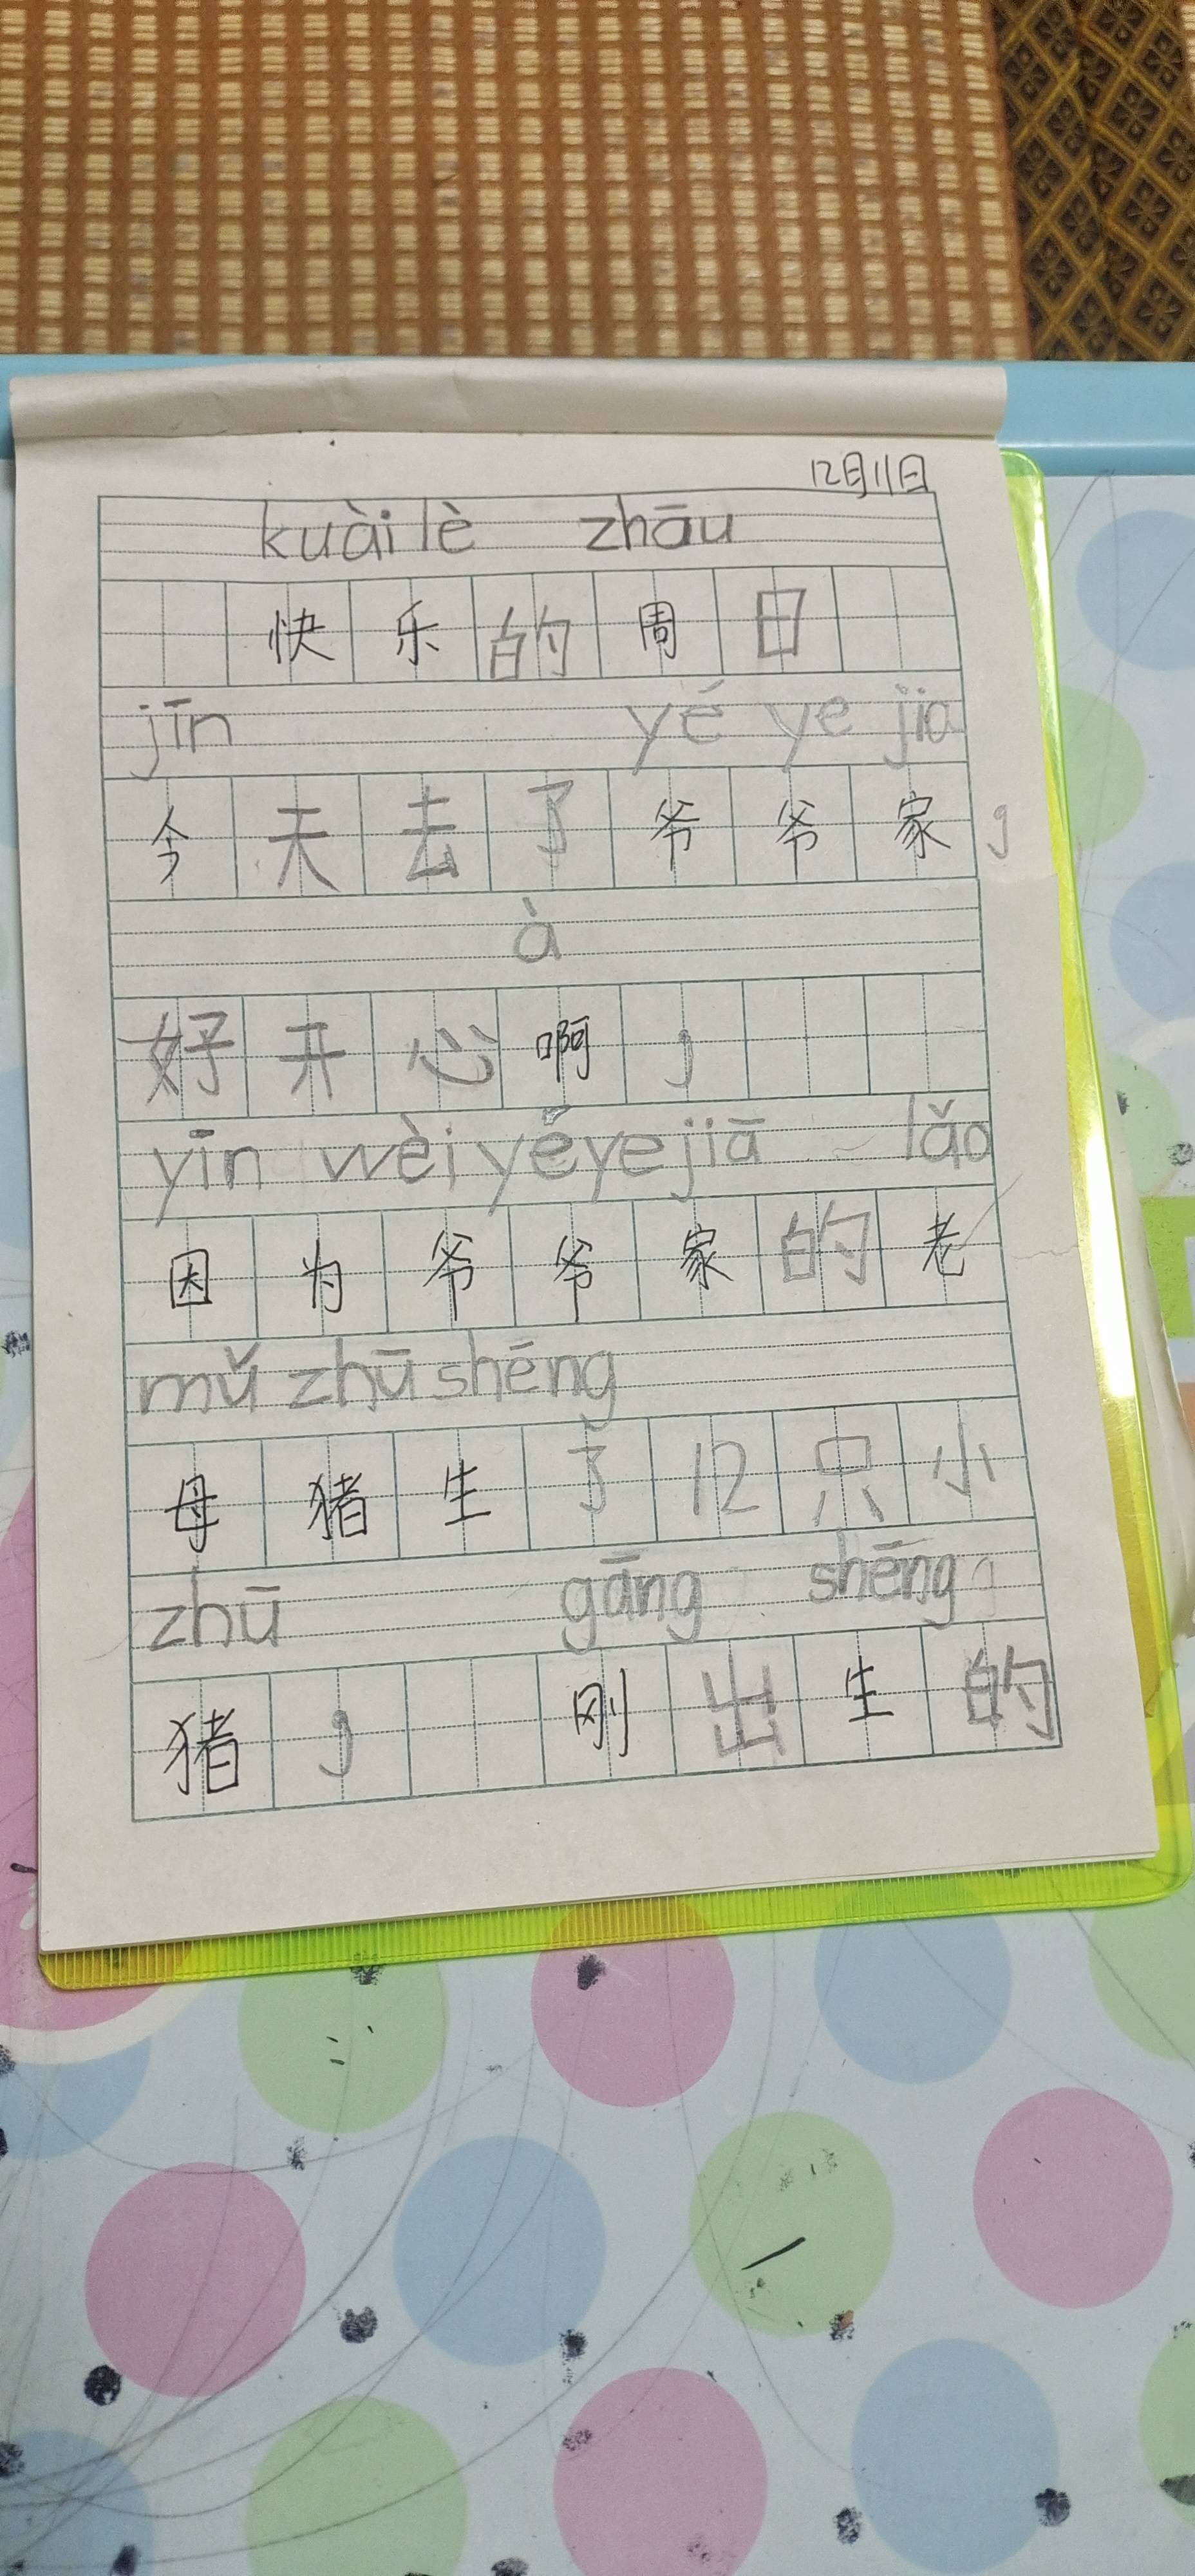 12月11日
kuàilè zhāu
快乐的周日
jīn yé ye jia
今天去了爷爷家,
à
好开心啊,
yīn wèi yéye jiā lǎo
因为爷爷家的老
mǔ zhū shēng
母猪生了12只小
zhū gāng shēng
猪, 刚出生的